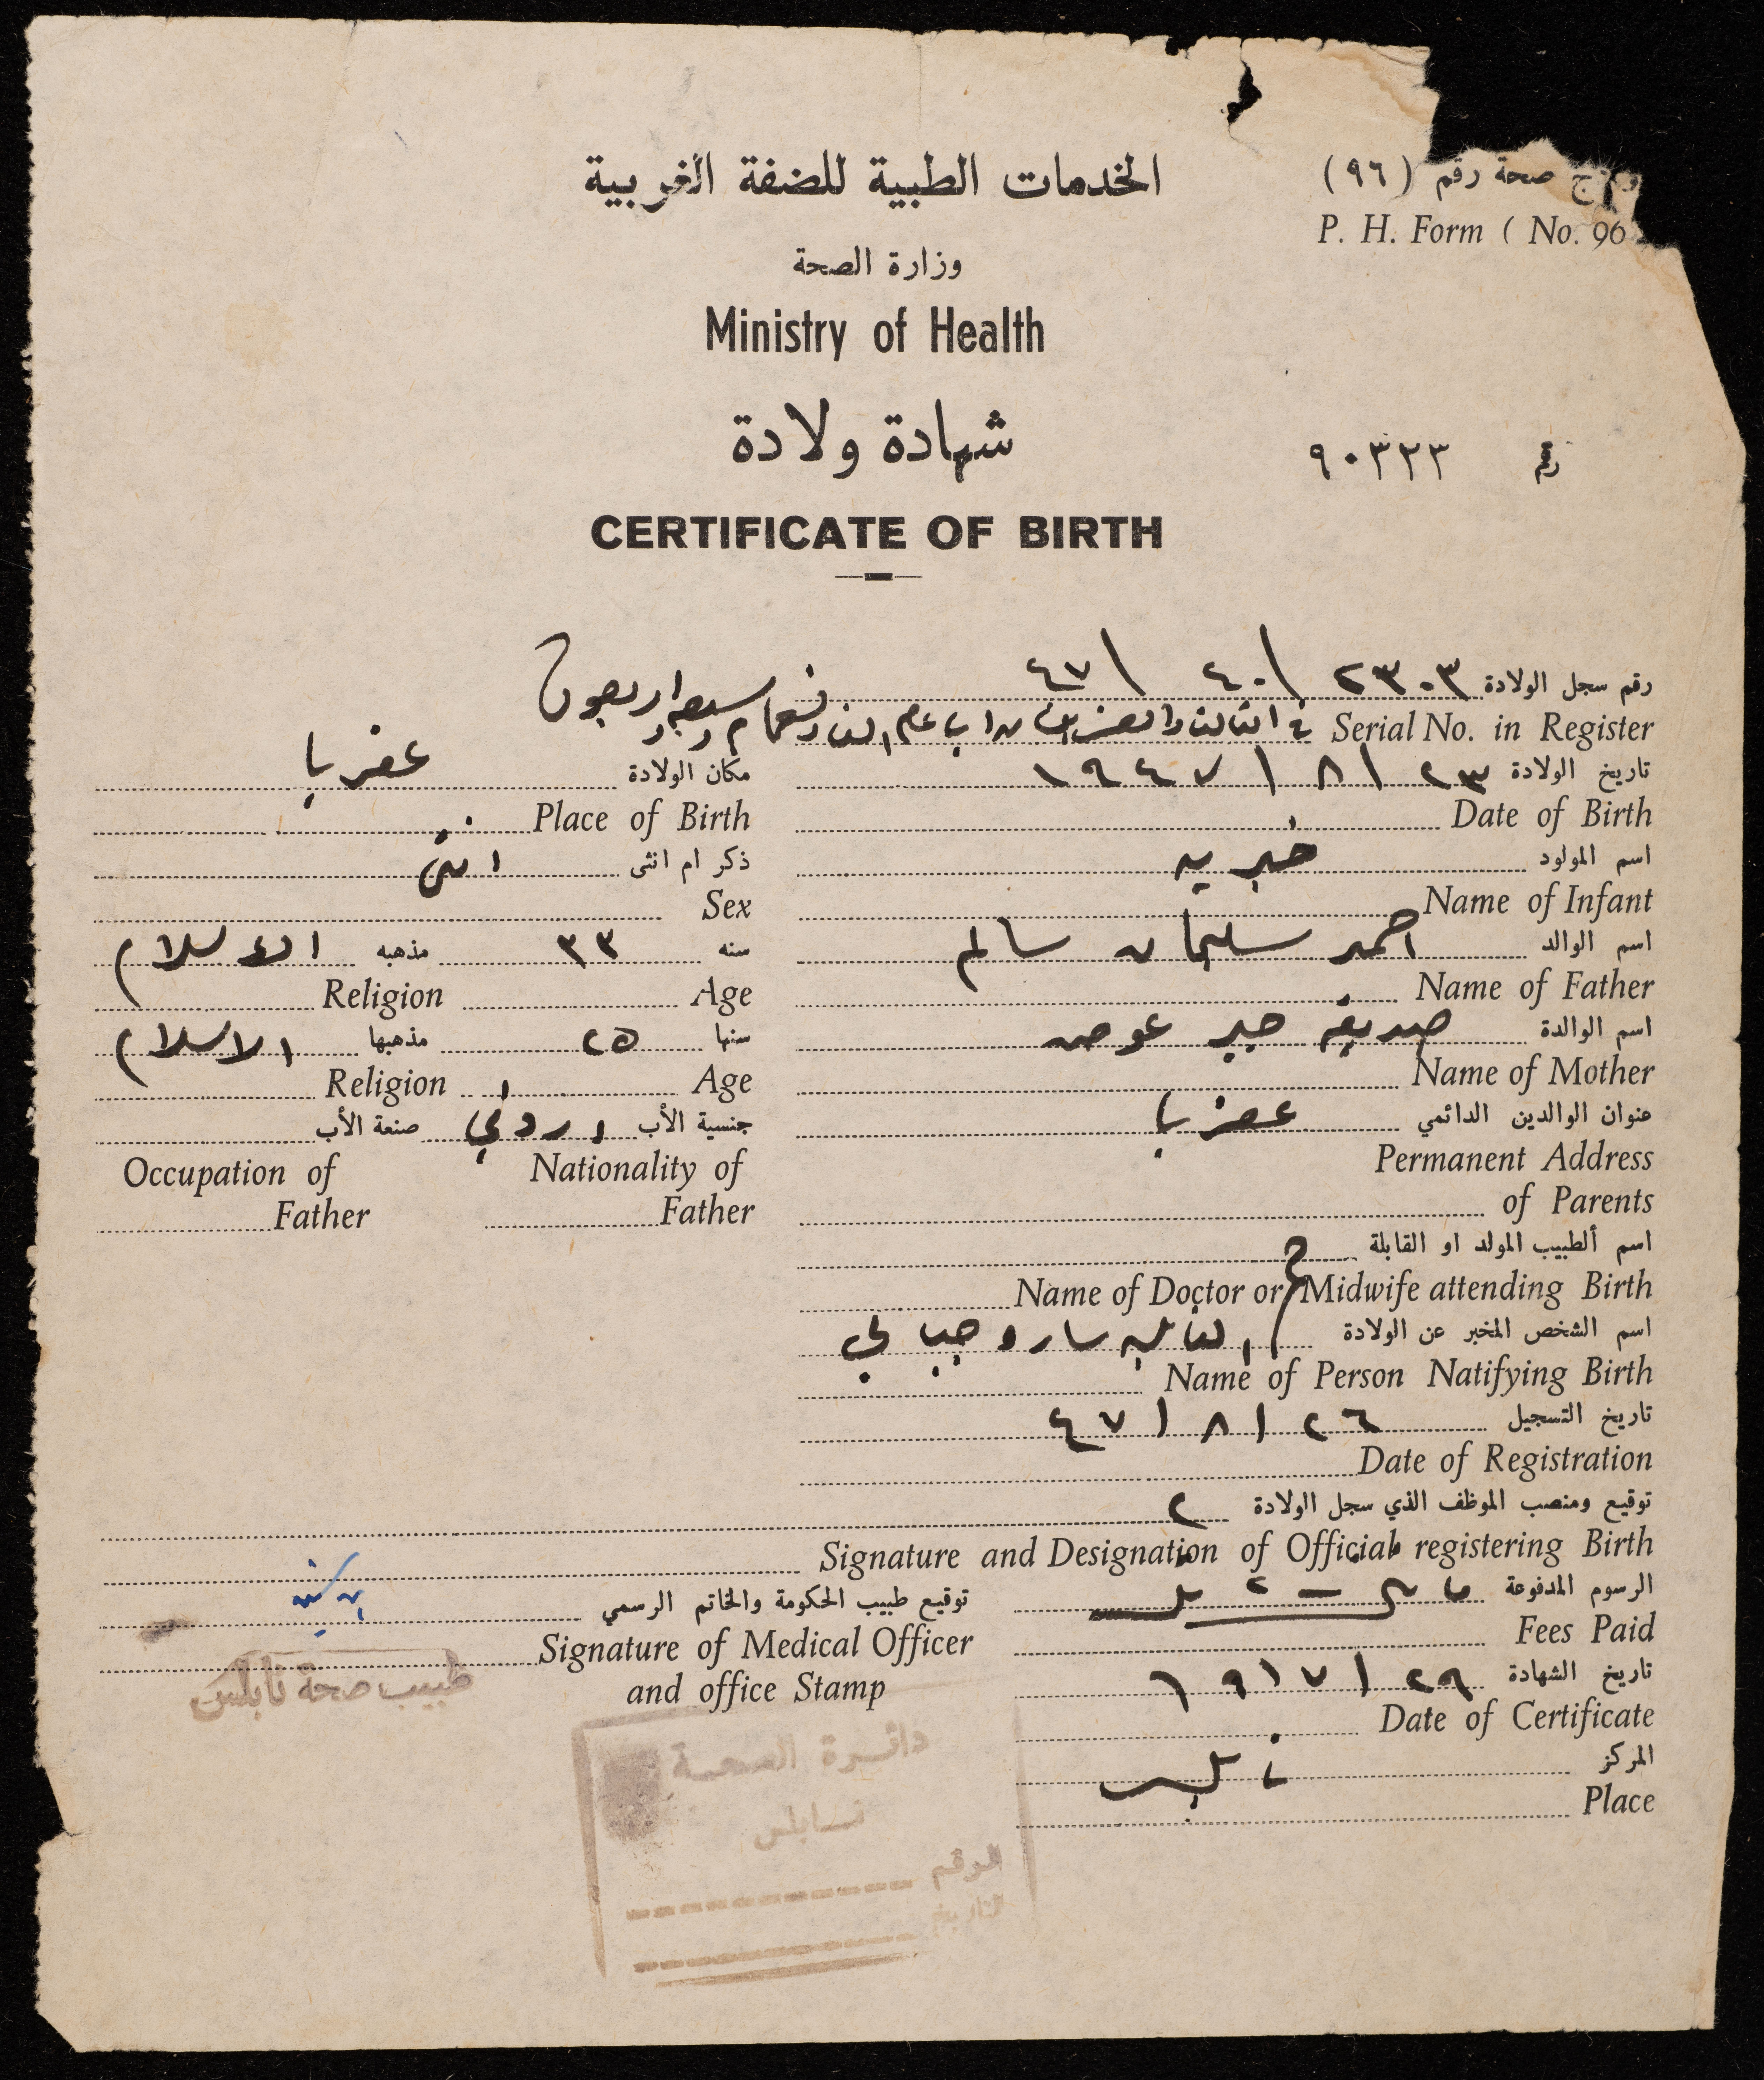 نموذج صحة رقم (٩٦)
P. H. Form ( No. 96
الخدمات الطبية للضفة الغربية
وزارة الصحة
Ministry of Health
شهادة ولادة
رقم ٩٠٣٢٣
CERTIFICATE OF BIRTH
رقم سجل الولادة ٢٣٠٣ / ٤٠ / ٤٧
Serial No. in Register في الثالث والعشرين من اب عام الف وتسعماية وسبعه واربعون
تاريخ الولادة ٢٣ / ٨ / ١٩٤٧ مكان الولادة عقربا
Date of Birth Place of Birth
اسم المولود خيريه ذكر ام انثى انثى
Name of Infant Sex
اسم الوالد احمد سليمان سالم سنه ٣٣ مذهبه الاسلام
Name of Father Age Religion
اسم الوالدة صديقه جبر عوض سنها ٢٥ مذهبها الاسلام
Name of Mother Age Religion
عنوان الوالدين الدائمي عقربا جنسية الأب اردني صنعة الأب
Permanent Address Nationality of Occupation of
of Parents Father Father
اسم ألطبيب المولد او القابلة
Name of Doctor or Midwife attending Birth
اسم الشخص المخبر عن الولادة القابله ساره
Name of Person Natifying Birth
تاريخ التسجيل ٢٦ / ٨ / ٤٧
Date of Registration
توقيع ومنصب الموظف الذي سجل الولادة
Signature and Designation of Official registering Birth
الرسوم المدفوعة توقيع طبيب الحكومة والخاتم الرسمي
Fees Paid Signature of Medical Officer
and office Stamp
طبيب صحة نابلس
تاريخ الشهادة
Date of Certificate
المركز نابلس
Place
دائرة الصحة
نابلس
الرقم
التاريخ